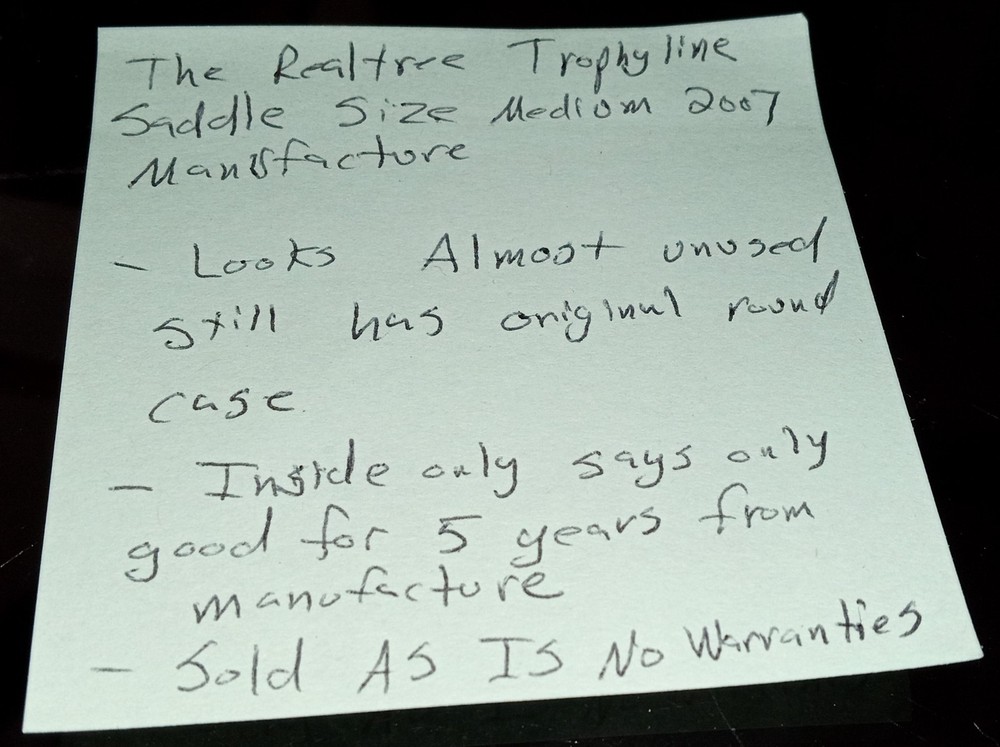 The Realtree Trophyline
Saddle Size Medium 2007
Manufacture
- Looks Almost unused
still has original round
case
- Inside only says only
good for 5 years from
manufacture
- Sold AS IS No Warranties